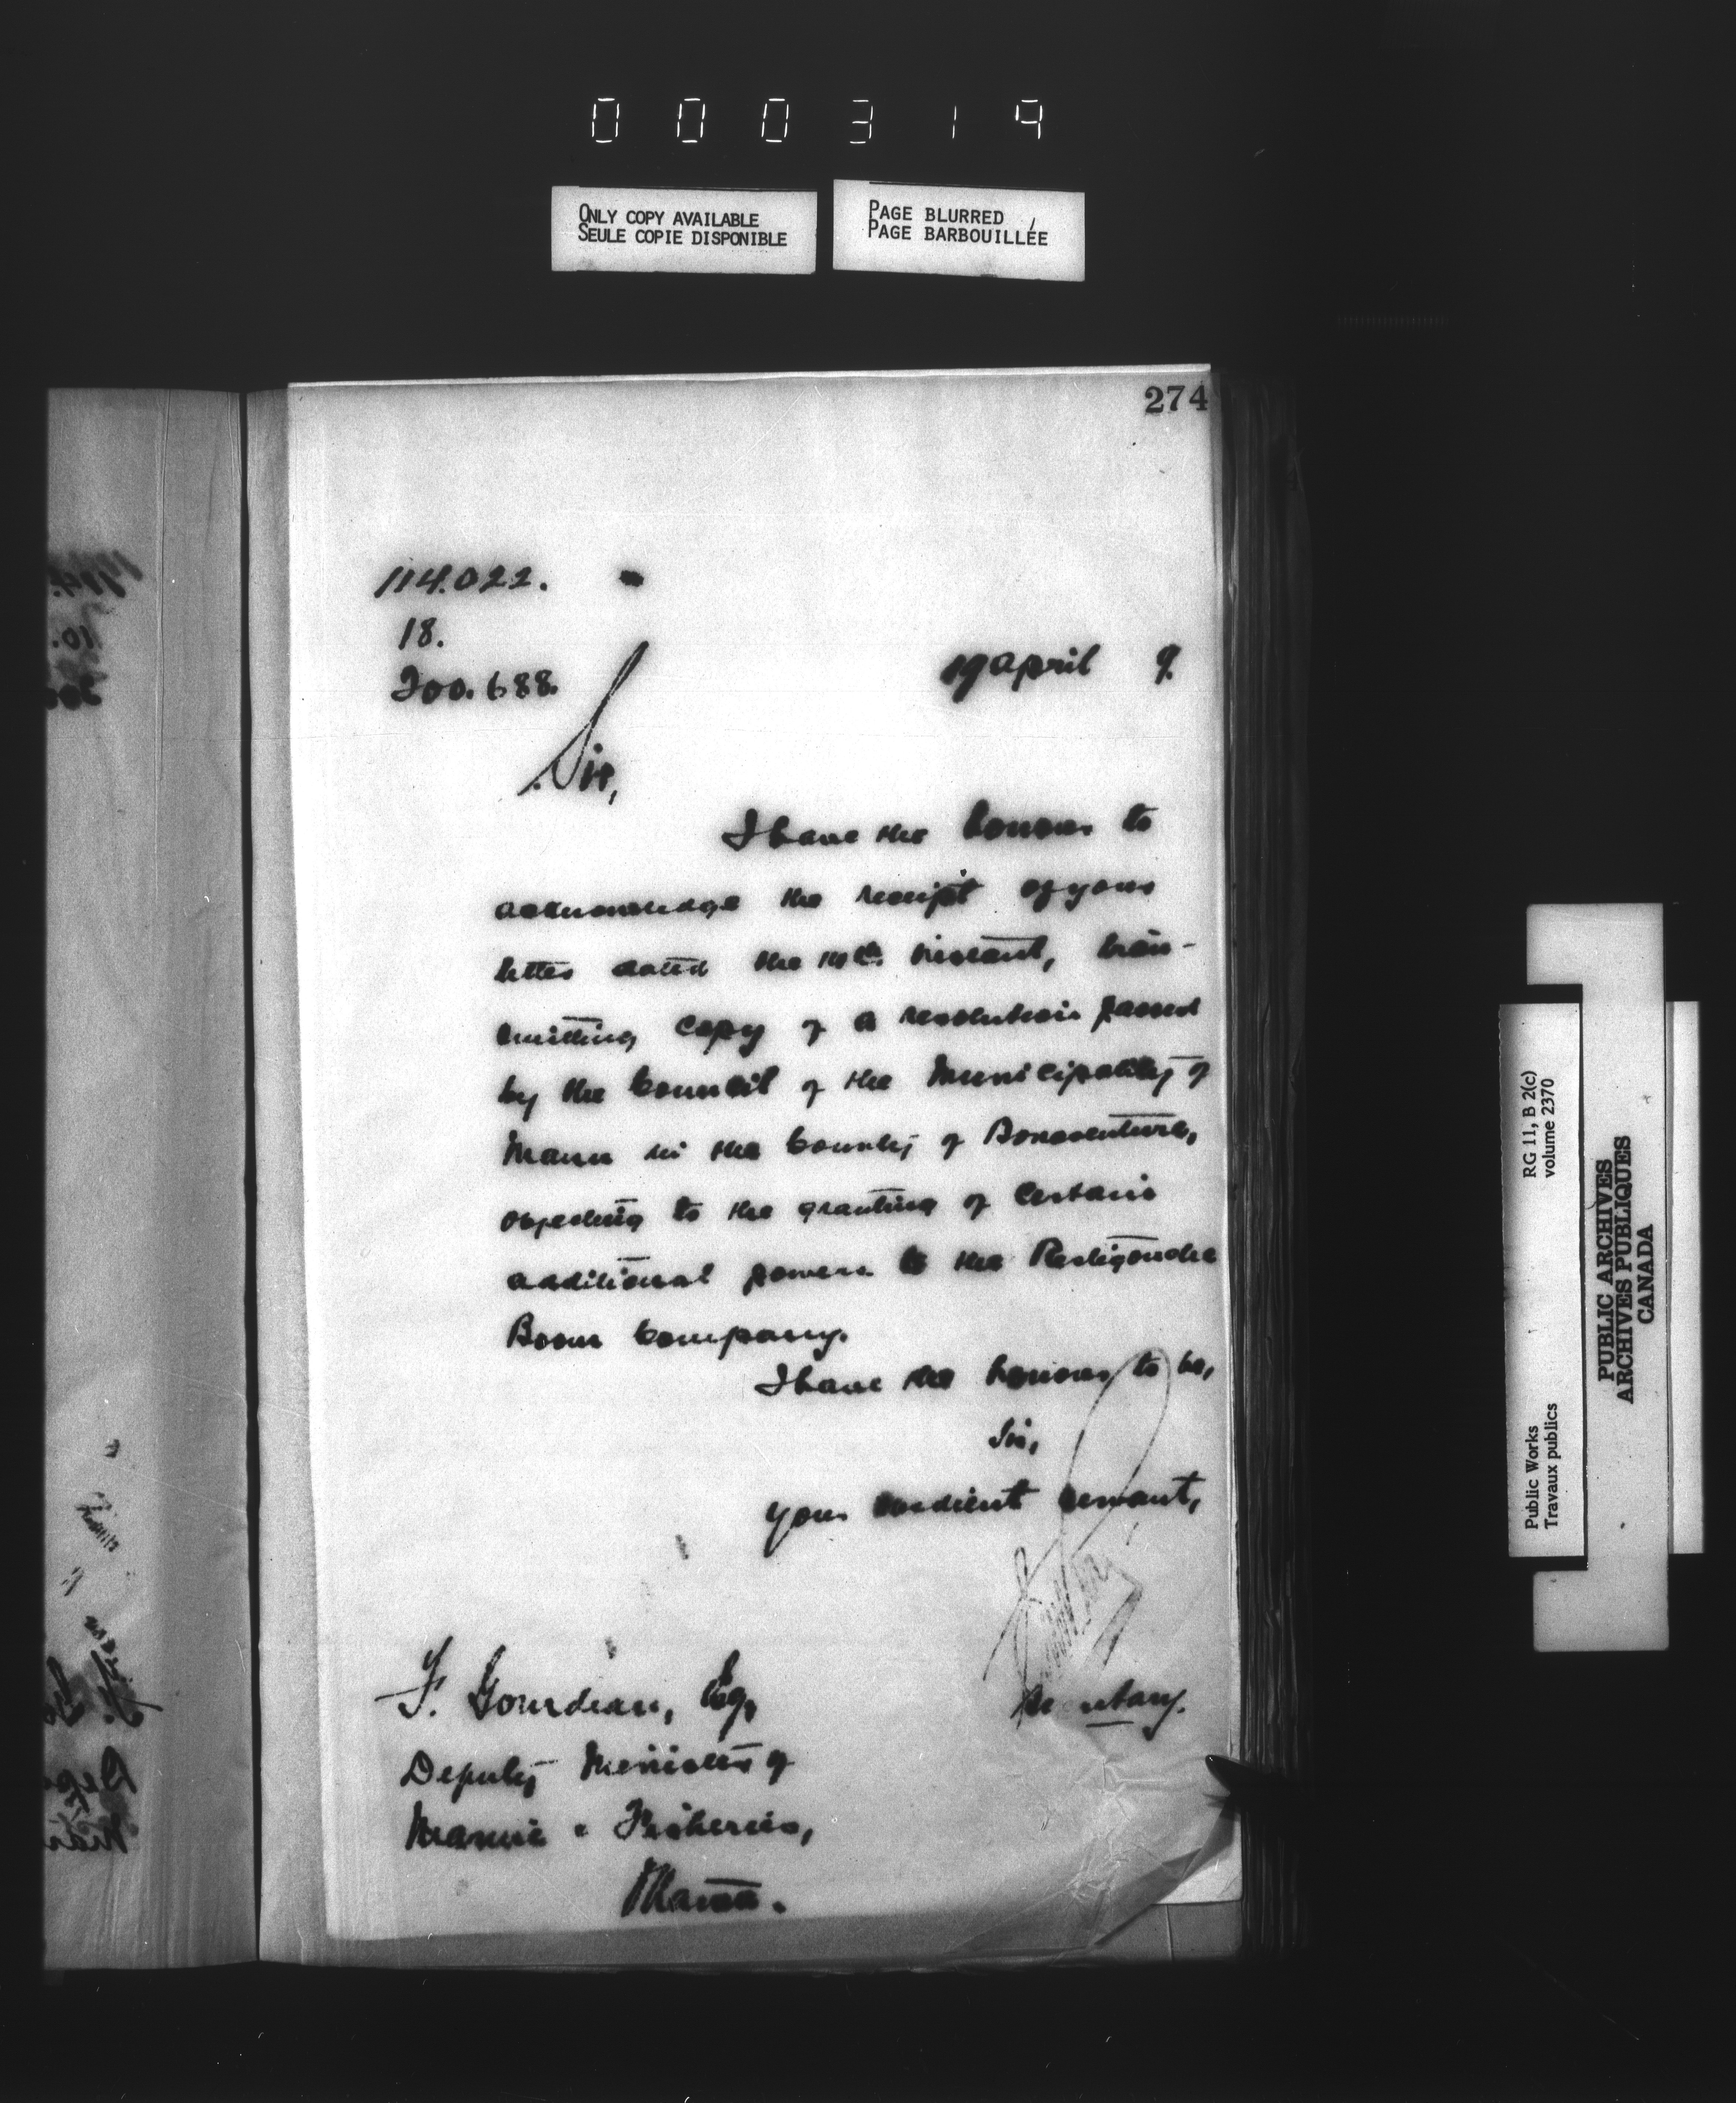 000319
ONLY COPY AVAILABLE
SEULE COPIE DISPONIBLE
PAGE BLURRED
PAGE BARBOUILLÉE
274
114.022.
18.
200.688.
19 April 9.
Sir,
I have the honour to
acknowledge the receipt of your
letter dated the instant, trans-
mitting copy of a resolution passed
by the Council of the Municipality of
Mann in the County of Bonaventure,
objecting to the granting of certain
additional powers to the Restigouche
Boom Company.
I have the honour to be,
Sir,
Your obedient servant,
Secretary.
F. Gourdeau, Esq,
Deputy Minister of
Marine & Fisheries,
Ottawa.
RG 11, B 2(c)
volume 2370
Public Works
Travaux publics
PUBLIC ARCHIVES
ARCHIVES PUBLIQUES
CANADA